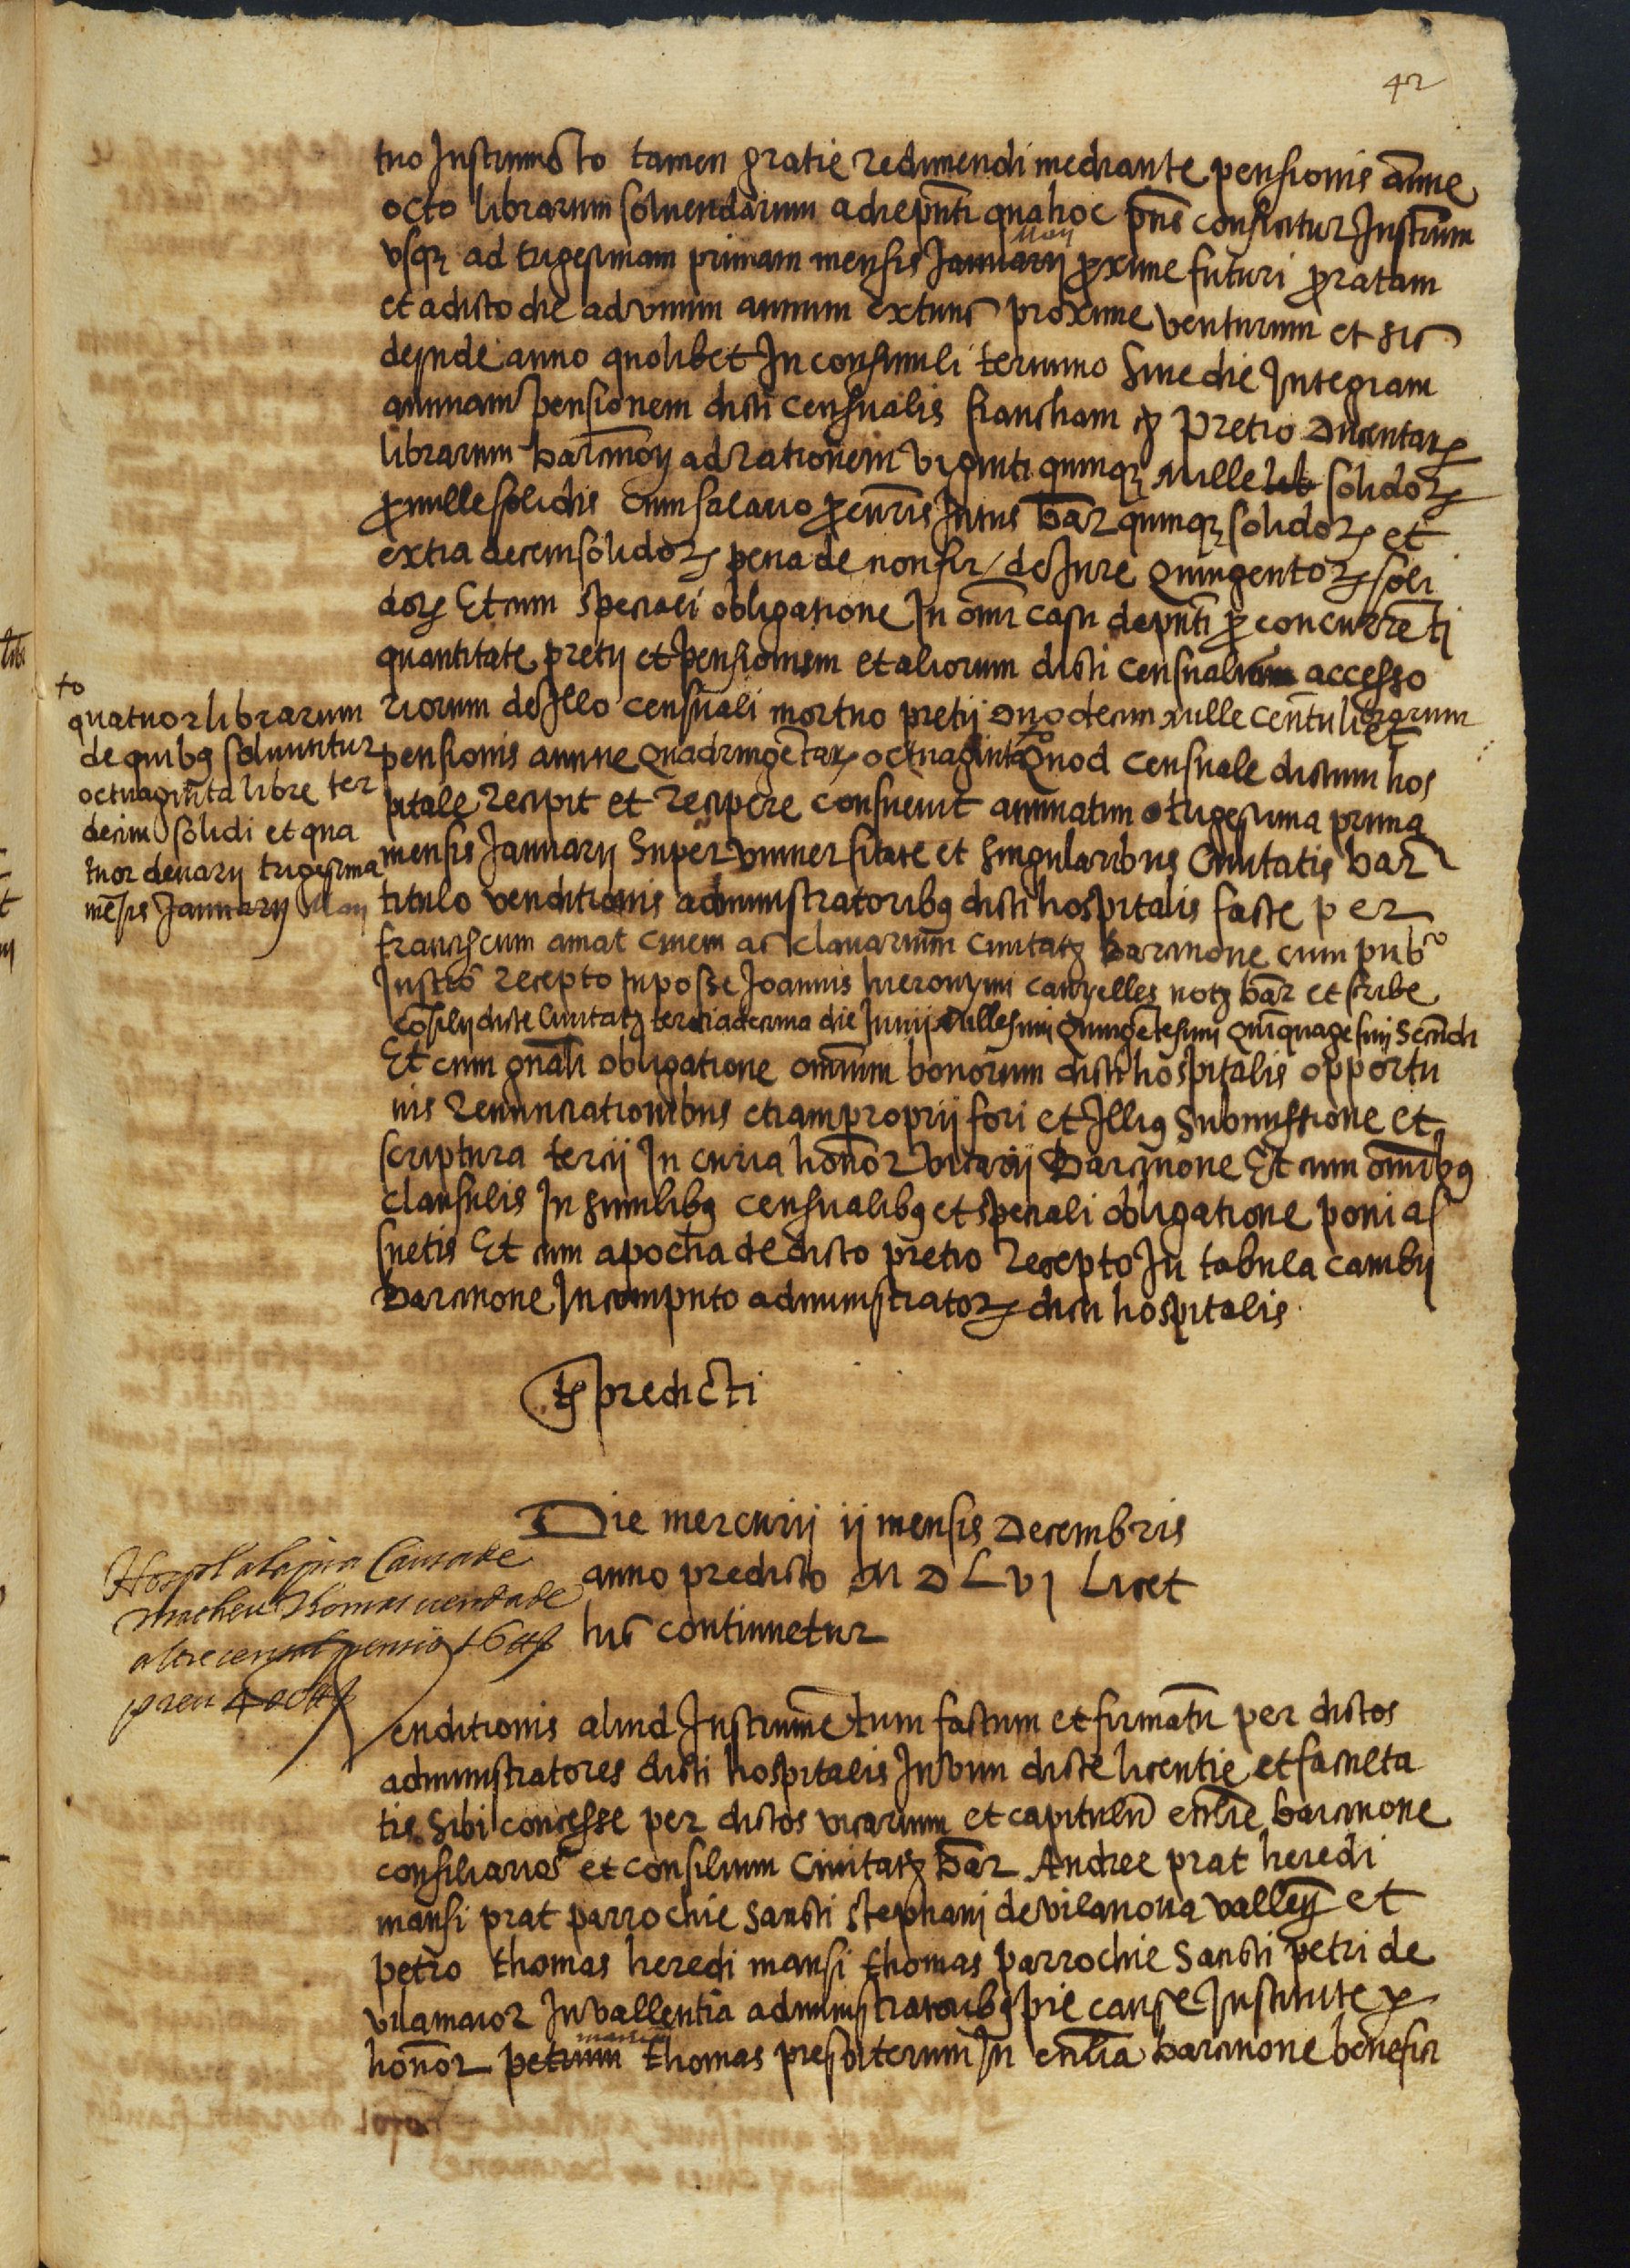 42
tuo Instrumēto tamen gratie redimendi mediante pensionis añue
octo librarum soluendarum a die pñti qua hoc pñs conficitur Instrum̄
vsq₃ ad trigesimam primam mensis Januarij maij proxime futuri pro ratam
et a dicto die ad vnum annum extunc proxime venturum et sic
deinde anno quolibet In consimili termino siue die Integram
annuam pensionem dicti censualis francham etc̄ Pretio Ducentar̄
librarum barcinoñ ad rationem viginti quinq₃ mille solidor̄
pro mille solidis cum salario procur̄is Intus bar̄ quinq₃ solidor̄ et
extra decem solidor̄ pena de non fir̄ de Jure Quingentor̄ soli
dor̄ Et cum speciali obligatione In om̄i casu de pñti pro concurrēti
quantitate pretij et pensionum et aliorum dicti censualis accesso
riorum de Illo censuali mortuo pretij Duodecim mille centū librarum et
pensionis annue Quadringētar̄ octuaginta Quod censuale dictum hos
pitale recipit et recipere consueuit annuatim trigesima prima
mensis Januarij Super vniuersitate et singularibus Ciuitatis bar̄
titulo venditionis administratoribꝰ dicti hospitalis facte per
franciscum amat ciuem ac clauarium ciuitatꝭ barcinone cum pubᶜᵒ
Instrō recepto In posse Joannis hieronymi canyelles notꝭ bar̄ et scribe
cōsilij dicte Ciuitatꝭ terciadecima die Junij Millesimi Quingētesimi Quīquagesimi Secūdi
Et cum gñali obligatione omnium bonorum dicti hospitalis opportu
nis renunciationibus etiam proprij fori et Illiꝰ submissione et
scriptura tercij In curia honor̄ vicarij Barcinone Et cum om̄ibꝰ
clausulis In similibꝰ censualibꝰ et speciali obligatione poni as
suetis Et cum apocha de dicto pretio recepto In tabula cambij
Barcinone In computo administrator̄ dicti hospitalis
to
quatuor librarum
de quibꝰ soluuntur
octuaginta libre ter
decim solidi et qua
tuor denarij trigesima
mēsis Januarij maij
tꝭ predicti
Die mercurij ij mensis Decembris
anno predicto M D L vj Licet
hic continuetur
macheu Thomas venda de
altre censal pensio 16 ₶
preu 400 ₶
Venditionis aliud Instrumētum factum et firmatū per dictos
administratores dicti hospitalis In vim dicte licentie et faculta
tis sibi concesse per dictos vicarium et capitulū ecc̄lie barcinone
consiliarios et consilium Ciuitatꝭ bar̄ Andree prat heredi
mansi prat parrochie Sancti Stephani de vilanoua valleñ et
petro thomas heredi mansi thomas parrochie Sancti petri de
vilamaior In vallentia administratoribꝰ pie cause Institute per
honor̄ petrum thomas presbiterum In ecc̄lia barcinone benefici